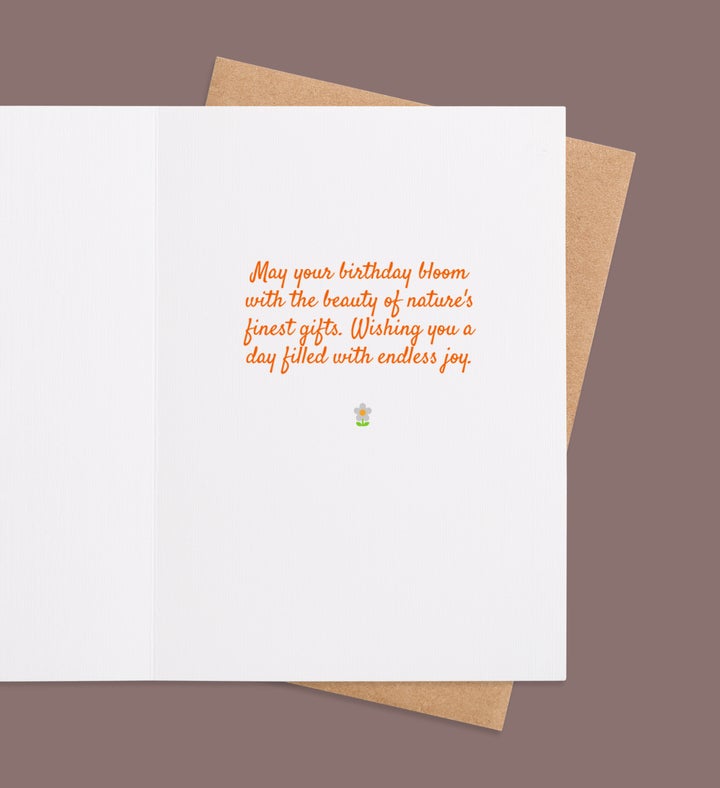 May your birthday bloom
with the beauty of nature's
finest gifts. Wishing you a
day filled with endless joy.